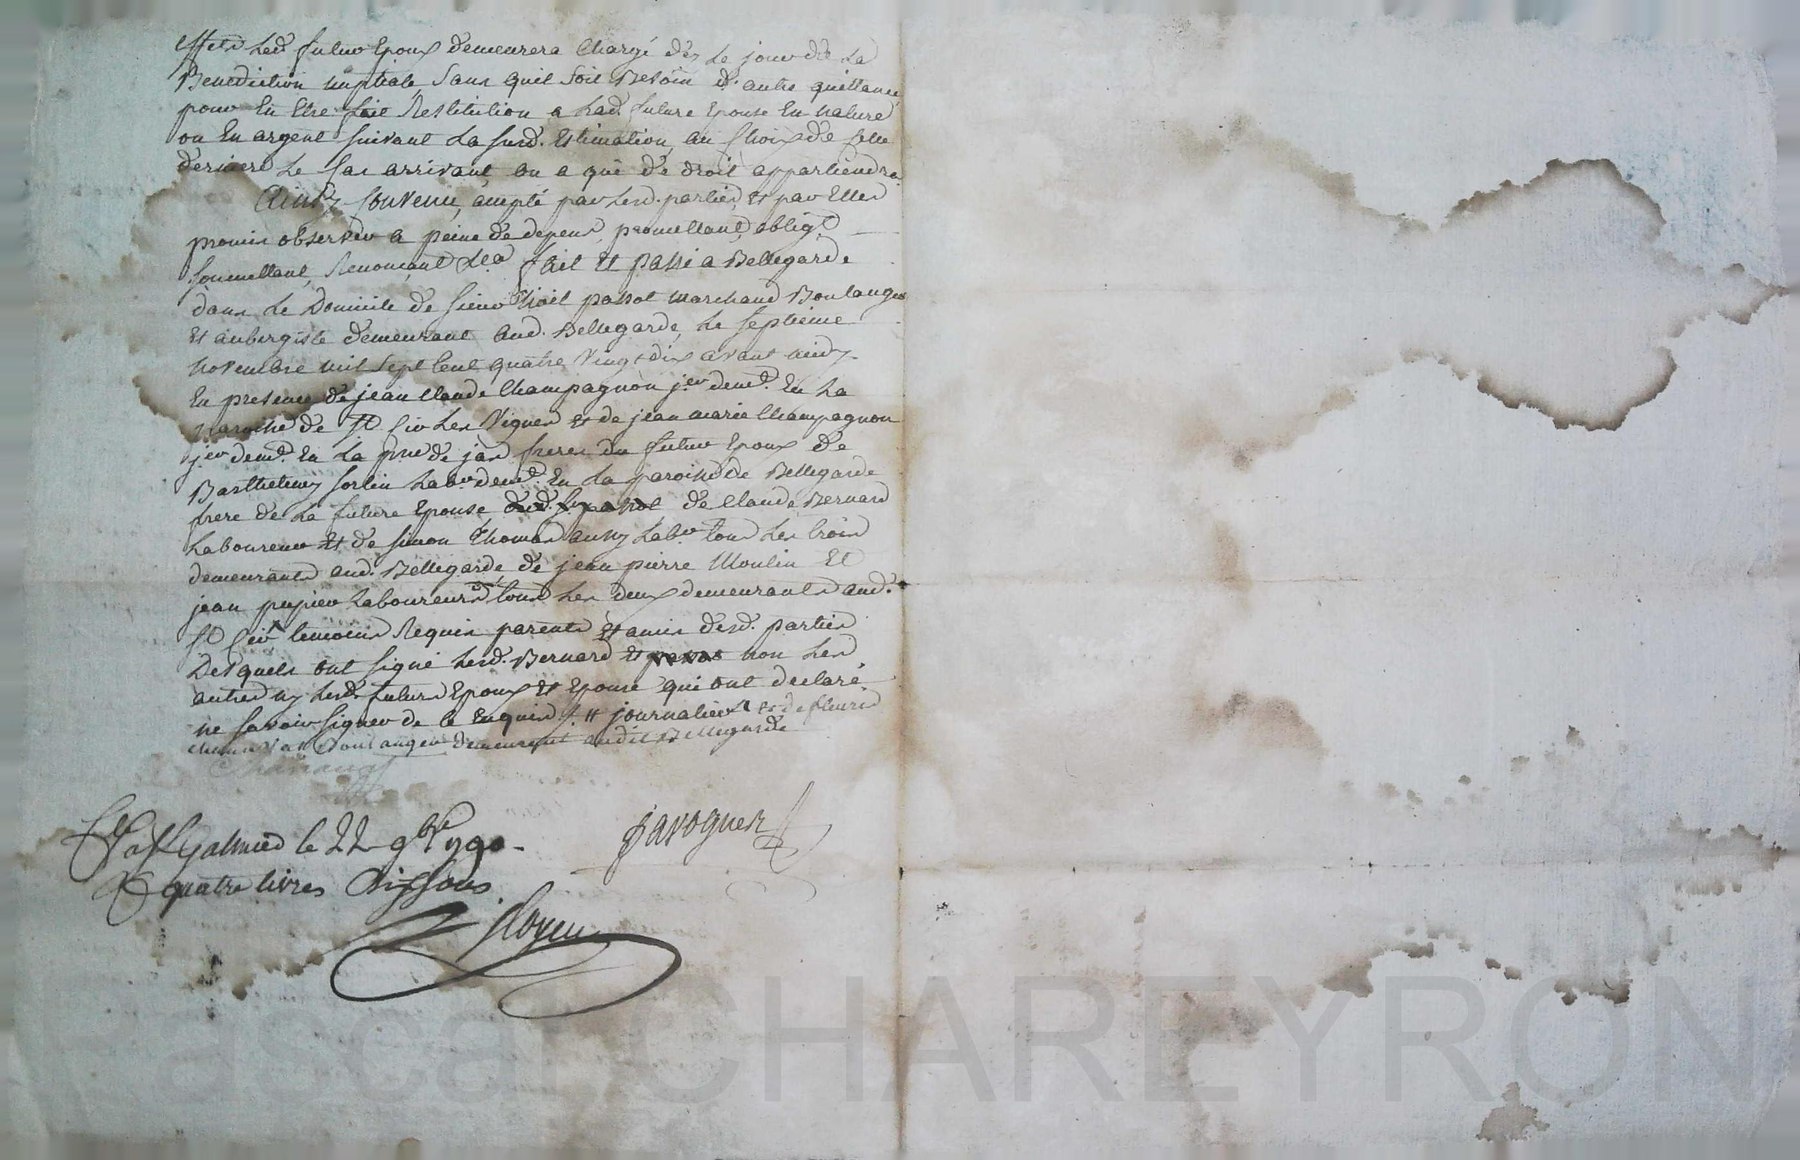 effets led. futur Epoux demeurera Chargé dès le jour de la
Benediction nuptiale, sans quil soit Besoin d'autre quittance,
pour En Etre fait Restitution a lad. future Epouse En nature
ou En argent suivant la susd. Estimation, au Choix de celle
derniere le Cas arrivant, ou a qui de droit appartiendra.
Ainsy Convenu, accepté par lesd. parties, et par Elles
promis observer a peine de depens, promettant, obligt.
Soumettant, Renonçant &ca fait et passé a Bellegarde
dans le Domicile de sieur passot marchand Boulanger
Et aubergiste demeurant aud. Bellegarde, le septieme
novembre mil sept Cent quatre vingt dix avant midy
En presence de jean Claude Champagnon jer. demt. En la
paroisse de St Cir les Vignes et de jean marie Champagnon
jer demt. En la psse de jas freres du futur Epoux de
Barthelemy sorlin labr. demt. En la paroisse de Bellegarde
frere de la future Epouse de Claude Bernard
Laboureur Et de simon Thomas aussy labr tous les trois
demeurants aud. Bellegarde de jean pierre Moulin Et
jean pupier laboureurs tous les deux demeurants aud.
St Cir temoins Requis parents et amis desd. parties
Desquels ont signé lesd. Bernard et non les
autres ny lesd. futurs Epoux et Epouse qui ont declaré
ne savoir signer de ce Enquis journalier et de fleurie
Boulanger demeurant audit Bellegarde
Cté a St Galmier le 22 9bre 1790
R quatre livres dix sous
javogues